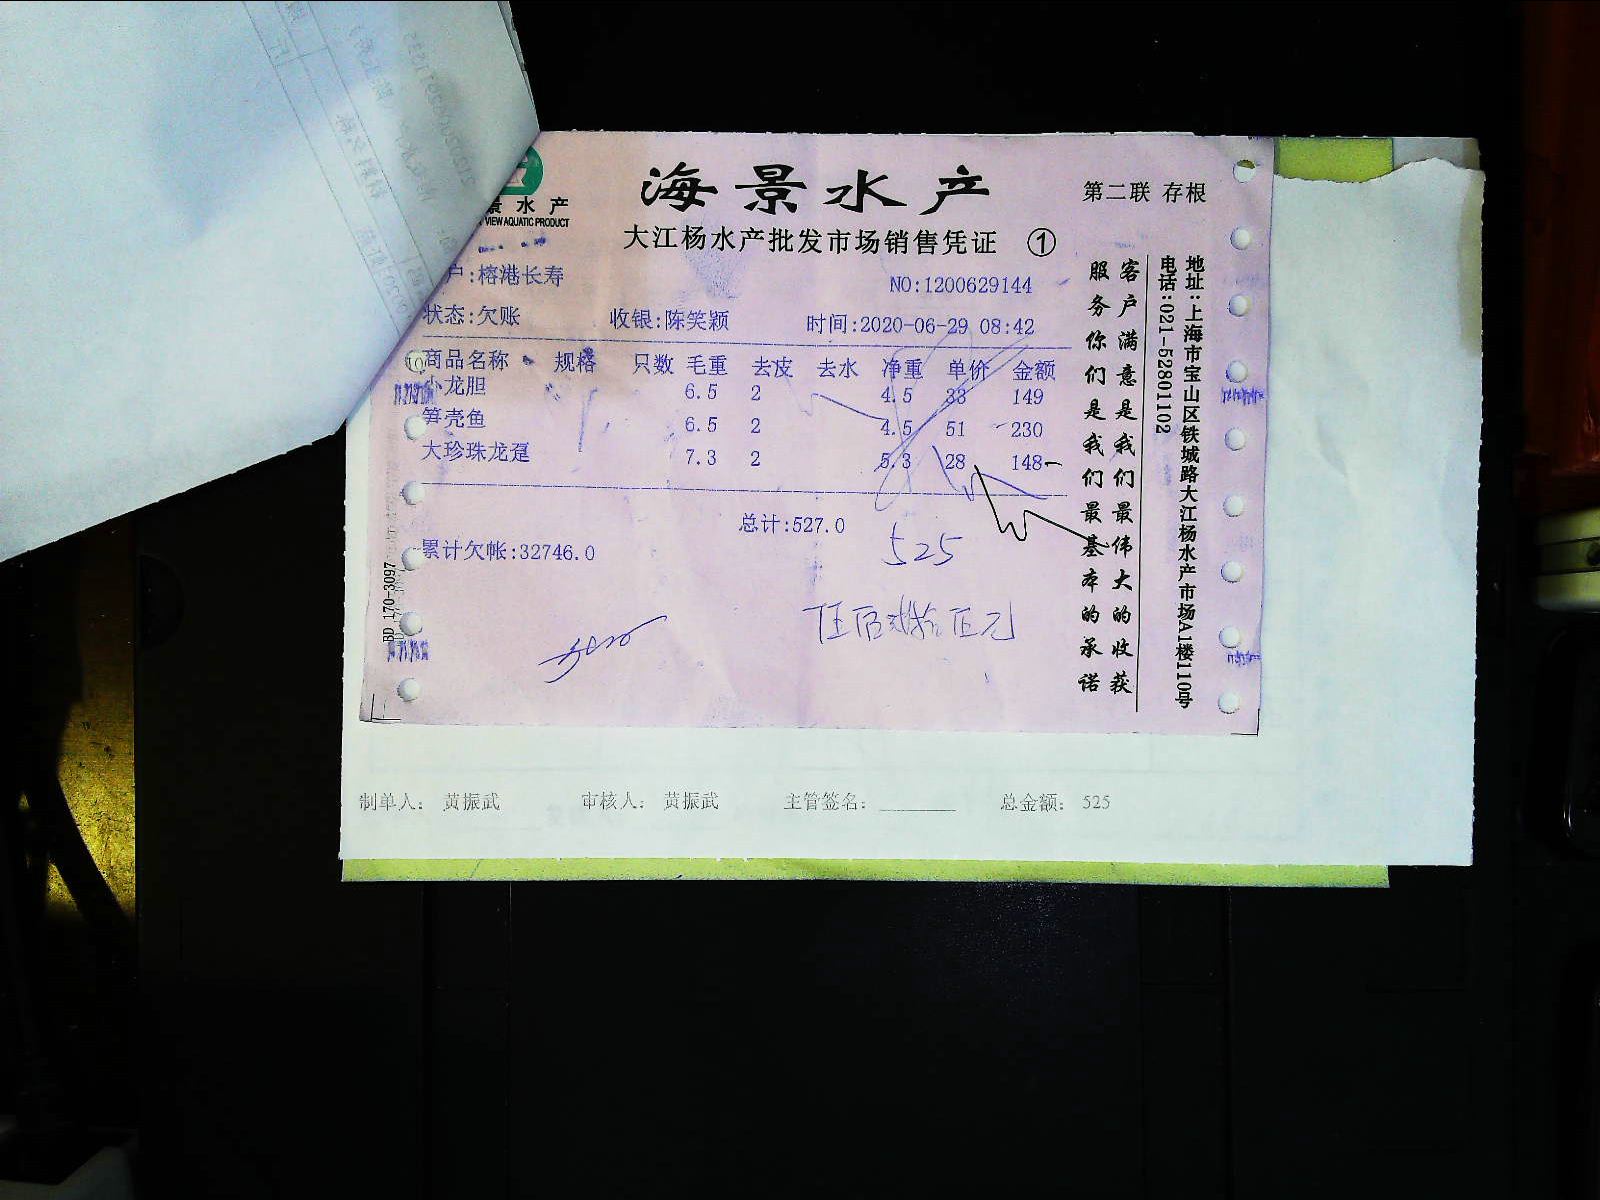 景水产
VIEW AQUATIC PRODUCT
海景水产
第二联 存根
大江杨水产批发市场销售凭证 ①
户:榕港长寿
NO:1200629144
状态:欠账 收银:陈笑颖 时间:2020-06-29 08:42
商品名称 规格 只数 毛重 去皮 去水 净重 单价 金额
小龙胆 6.5 2 4.5 33 149
笋壳鱼 6.5 2 4.5 51 230
大珍珠龙趸 7.3 2 5.3 28 148
总计:527.0
累计欠帐:32746.0
525
伍佰贰拾伍元
客户满意是我们最伟大的收获
服务你们是我们最基本的承诺
地址:上海市宝山区铁城路大江杨水产市场A1楼110号
电话:021-52801102
BD 170-3097
制单人: 黄振武 审核人: 黄振武 主管签名: 总金额: 525